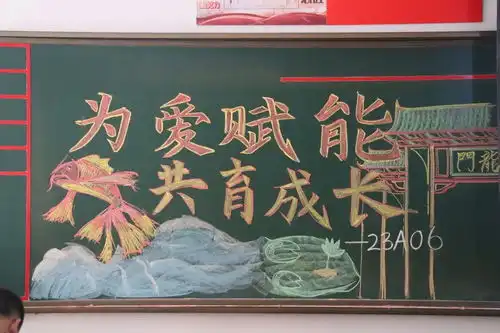 为爱赋能
共育成长
—23A06
門龍